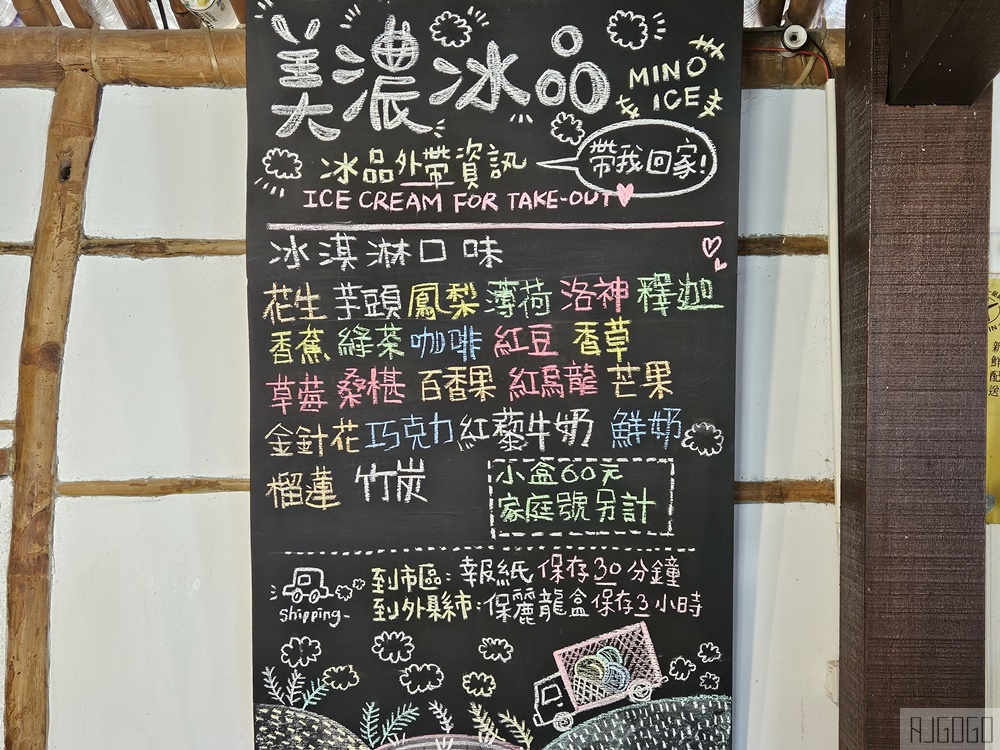 美濃冰品
MINO
ICE
冰品外帶資訊
帶我回家!
ICE CREAM FOR TAKE-OUT
冰淇淋口味
花生 芋頭 鳳梨 薄荷 洛神 釋迦
香蕉 綠茶 咖啡 紅豆 香草
草莓 桑椹 百香果 紅烏龍 芒果
金針花 巧克力 紅藜牛奶 鮮奶
榴蓮 竹炭
小盒60元
家庭號另計
到市區:報紙 保存30分鐘
到外縣市:保麗龍盒 保存3小時
Shipping
新鮮配送
AJGOGO